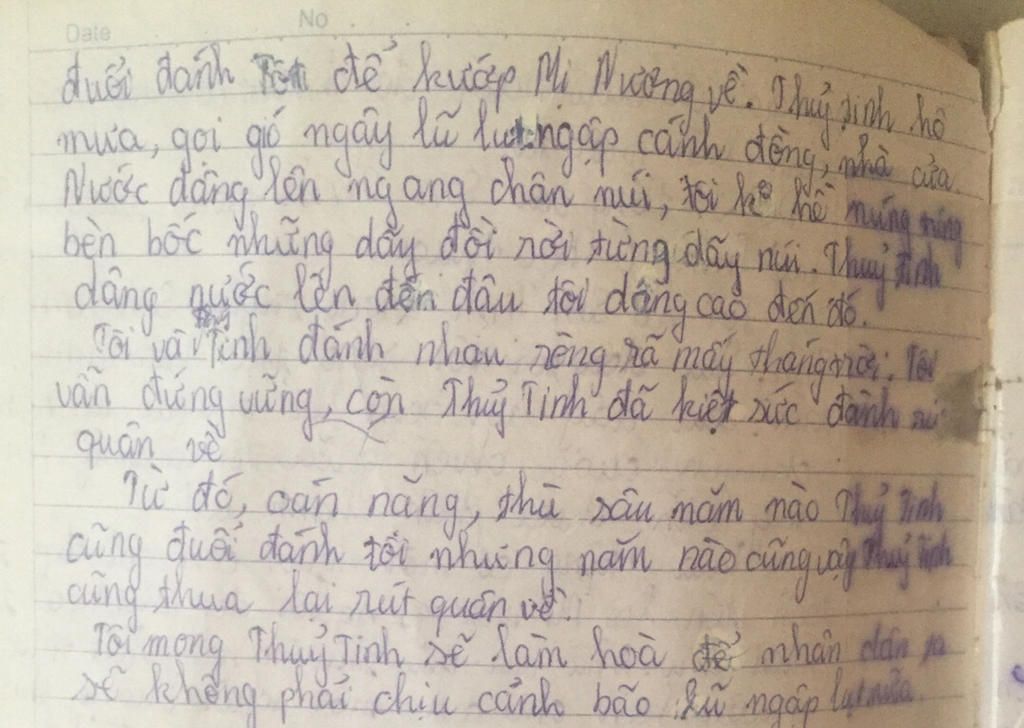 Date No
đuổi đánh tôi để kướp Mi Nương về. Thuỷ tinh hô
mưa, gọi gió ngây lũ lụt ngập cánh đồng, nhà cửa.
Nước dâng lên ngang chân núi, tôi k hề núng túng
bèn bốc những dãy đồi rời từng dãy núi. Thuỷ Tinh
dâng nước lên đến đâu tôi dâng cao đến đó.
Tôi và Thuỷ Tinh đánh nhau ròng rã mấy tháng trời. Tôi
vẫn đứng vững, còn Thuỷ Tinh đã kiệt sức đành rút
quân về
Từ đó, oán nặng, thù sâu năm nào Thuỷ Tinh
cũng đuổi đánh tôi nhưng năm nào cũng vậy Thuỷ Tinh
cũng thua lại rút quân về.
Tôi mong Thuỷ Tinh sẽ làm hoà để nhân dân ta
sẽ không phải chịu cảnh bão lũ ngập lụt nữa.